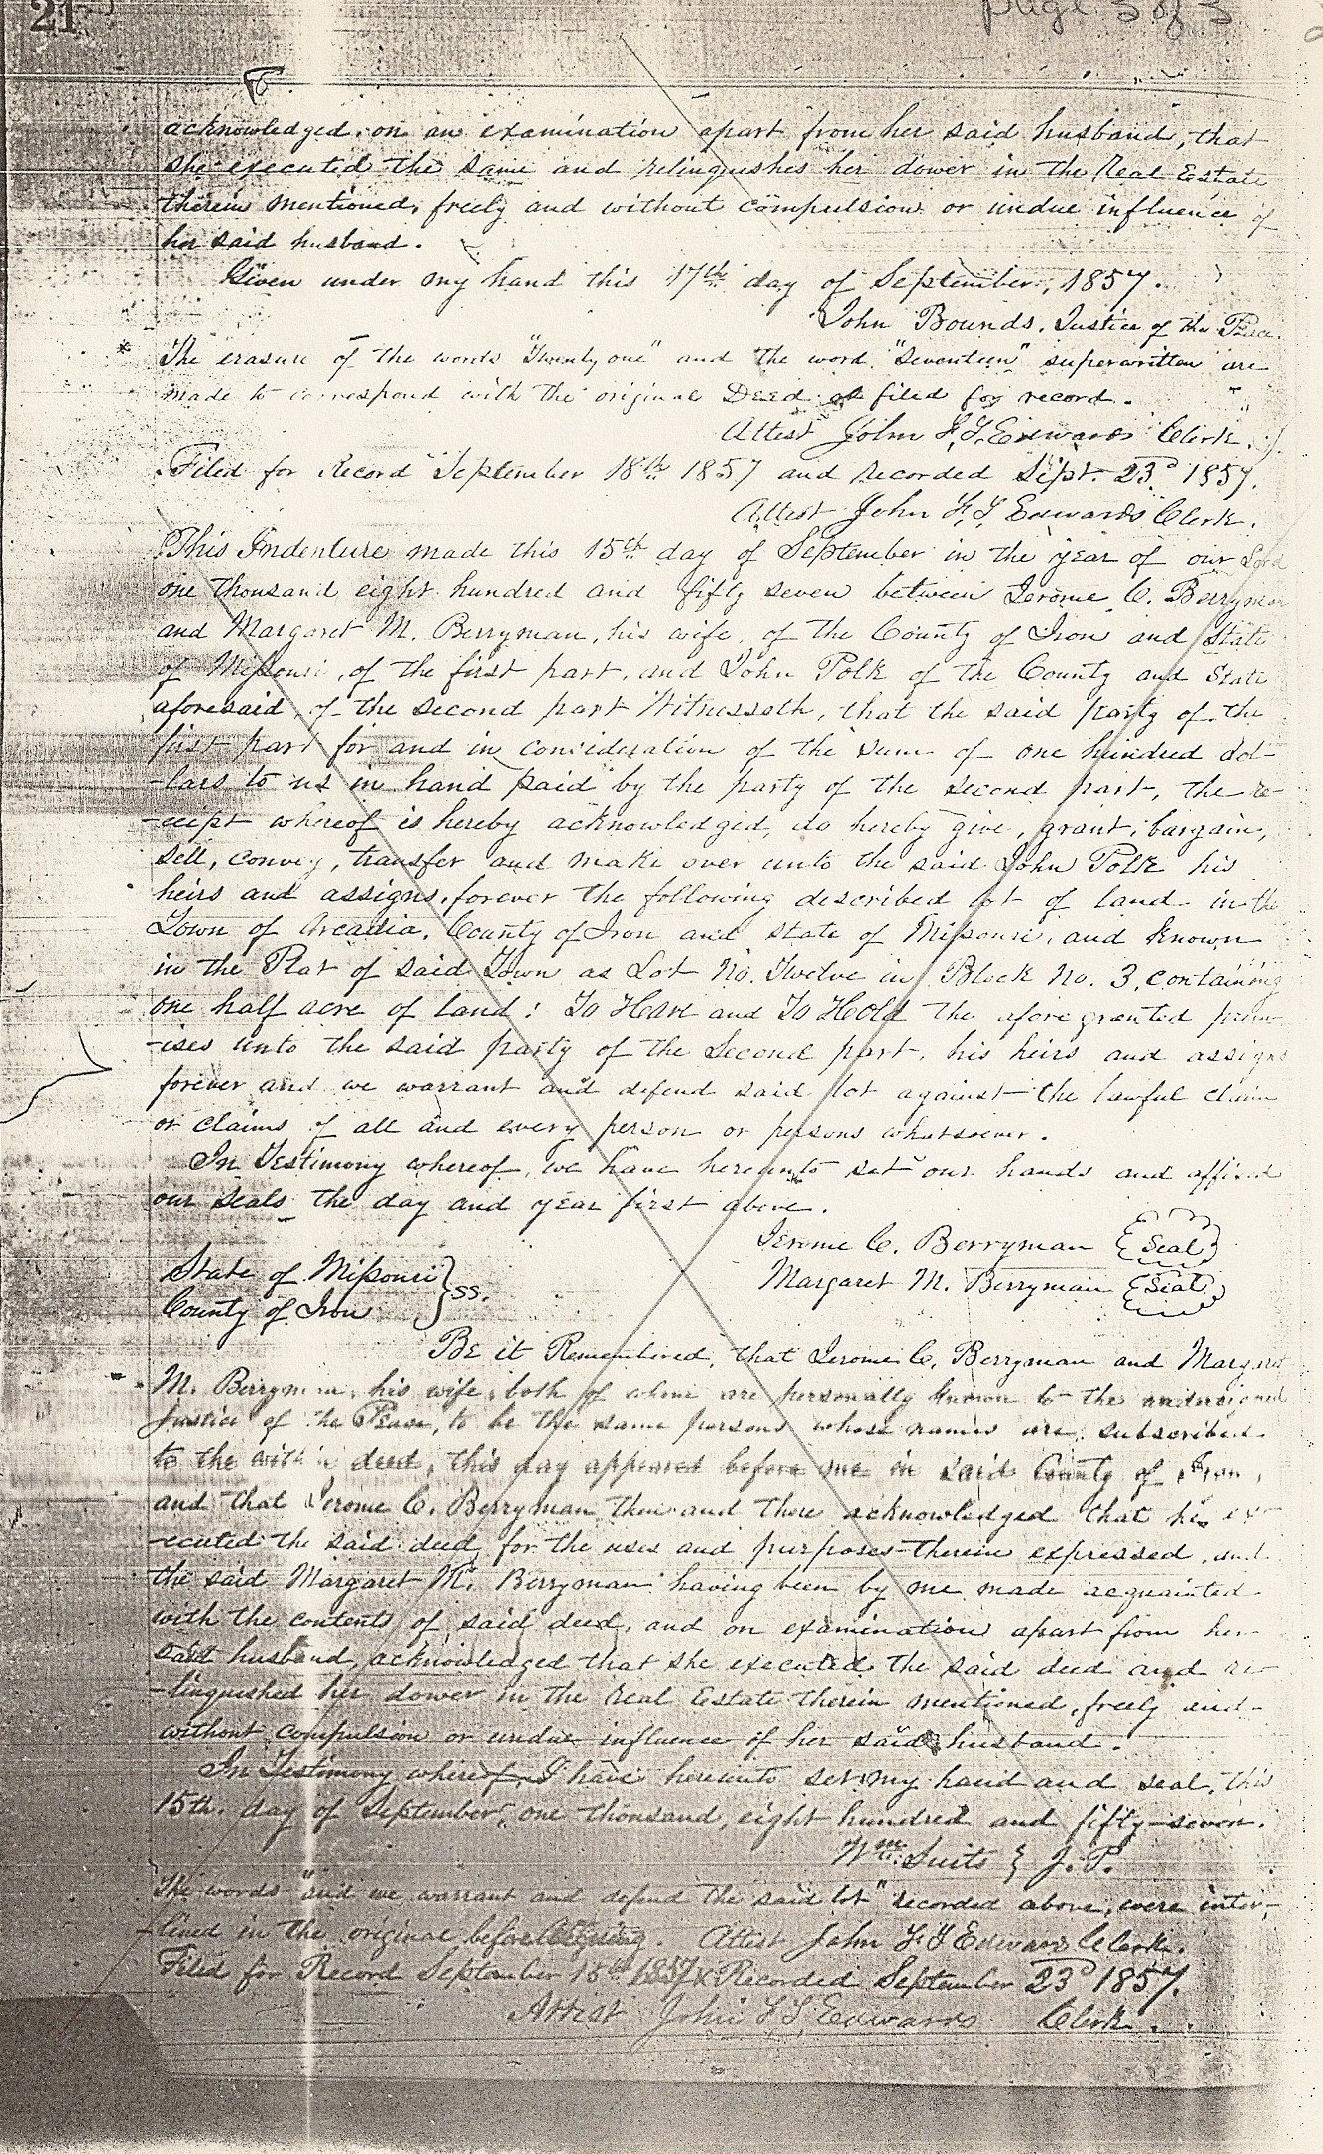 21
page 3 of 3
acknowledged on an examination apart from her said husband, that
she executed the same and relinquishes her dower in the Real Estate
therein mentioned, freely and without compulsion or undue influence of
her said husband.
Given under my hand this 17th day of September, 1857.
John Bounds, Justice of the Peace.
* The erasure of the words "Twenty one" and the word "Seventeen" superwritten are
made to correspond with the original Deed as filed for record.
Attest John F. T. Edwards Clerk.
Filed for Record September 18th 1857 and recorded Sept. 23d 1857.
Attest John F. T. Edwards Clerk.
This Indenture made this 15th day of September in the year of our Lord
one thousand eight hundred and fifty seven between Jerome C. Berryman
and Margaret M. Berryman, his wife, of the County of Iron and State
of Missouri, of the first part, and John Polk of the County and State
aforesaid, of the second part Witnesseth, that the said party of the
first part for and in consideration of the sum of one hundred dol-
-lars to us in hand paid by the party of the second part, the re-
-ceipt whereof is hereby acknowledged, do hereby give, grant, bargain,
sell, convey, transfer and make over unto the said John Polk his
heirs and assigns, forever the following described lot of land in the
Town of Arcadia, County of Iron and State of Missouri, and known
in the Plat of said Town as Lot No. Twelve in Block No. 3, containing
one half acre of land: To Have and To Hold the afore granted prem-
-ises unto the said party of the Second part, his heirs and assigns
forever and we warrant and defend said lot against the lawful claim
or claims of all and every person or persons whatsoever.
In Testimony whereof, we have hereunto set our hands and affixed
our Seals the day and year first above.
Jerome C. Berryman (Seal)
Margaret M. Berryman (Seal)
State of Missouri } ss.
County of Iron
Be it Remembered, that Jerome C. Berryman and Margaret
M. Berryman, his wife, both of whom are personally known to the undersigned
Justice of the Peace, to be the same persons whose names are subscribed
to the within deed, this day appeared before me in said County of Iron,
and that Jerome C. Berryman then and there acknowledged that he ex-
-ecuted the said deed for the uses and purposes therein expressed, and
the said Margaret M. Berryman having been by me made acquainted
with the contents of said deed, and on examination apart from her
said husband, acknowledged that she executed the said deed and re-
-linquished her dower in the Real Estate therein mentioned, freely and
without compulsion or undue influence of her said husband.
In Testimony whereof, I have hereunto set my hand and seal, this
15th. day of September, one thousand, eight hundred and fifty-seven.
Wm. Suits } J. P.
The words "and we warrant and defend the said lot" recorded above, were inter-
-lined in the original before signing. Attest John F T Edwards Clerk.
Filed for Record September 18th 1857 & Recorded September 23d 1857.
Attest John F T Edwards Clerk.